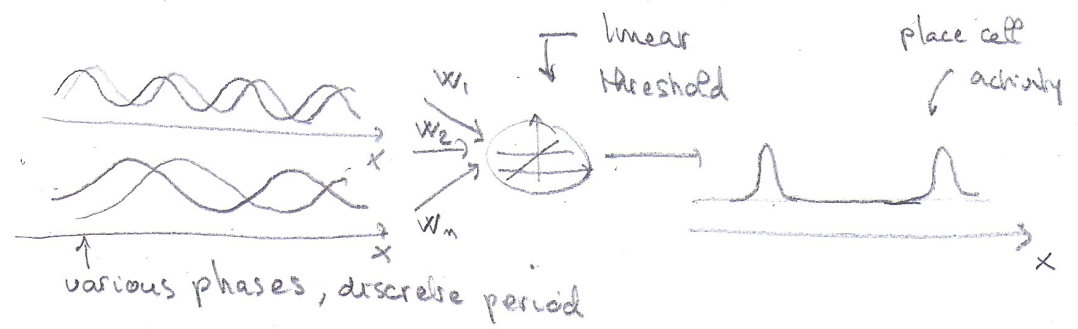 linear
threshold
place cell
activity
W1
W2
Wn
x
x
x
various phases, discrete period